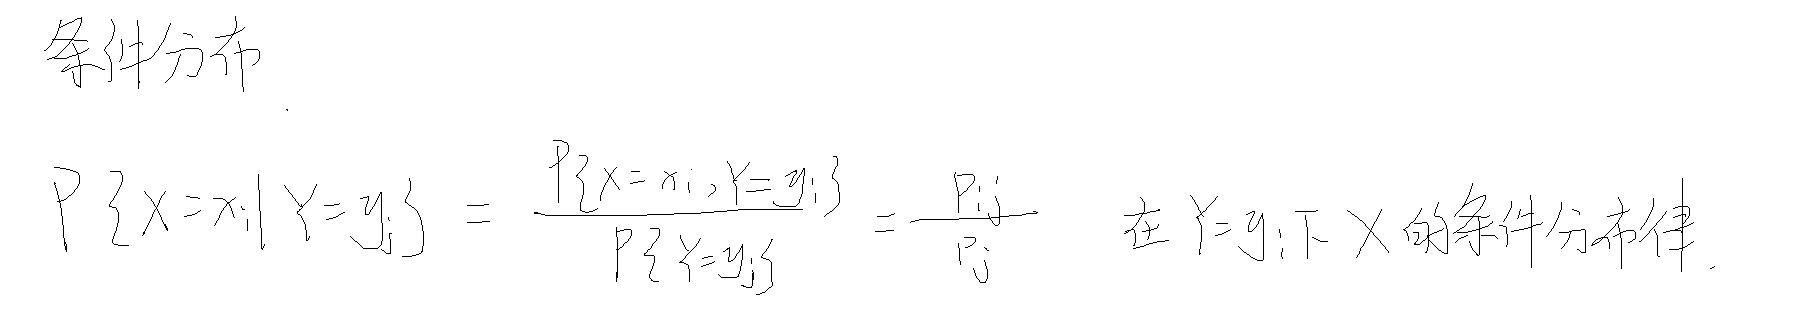 条件分布.
P{X=xi|Y=yj} = P{X=xi,Y=yj}/P{Y=yj} = Pij/Pj 在Y=yj下X的条件分布律.